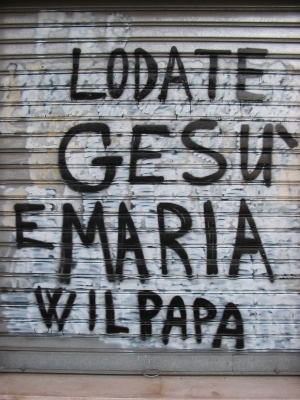 LODATE
GESU'
E MARIA
W IL PAPA